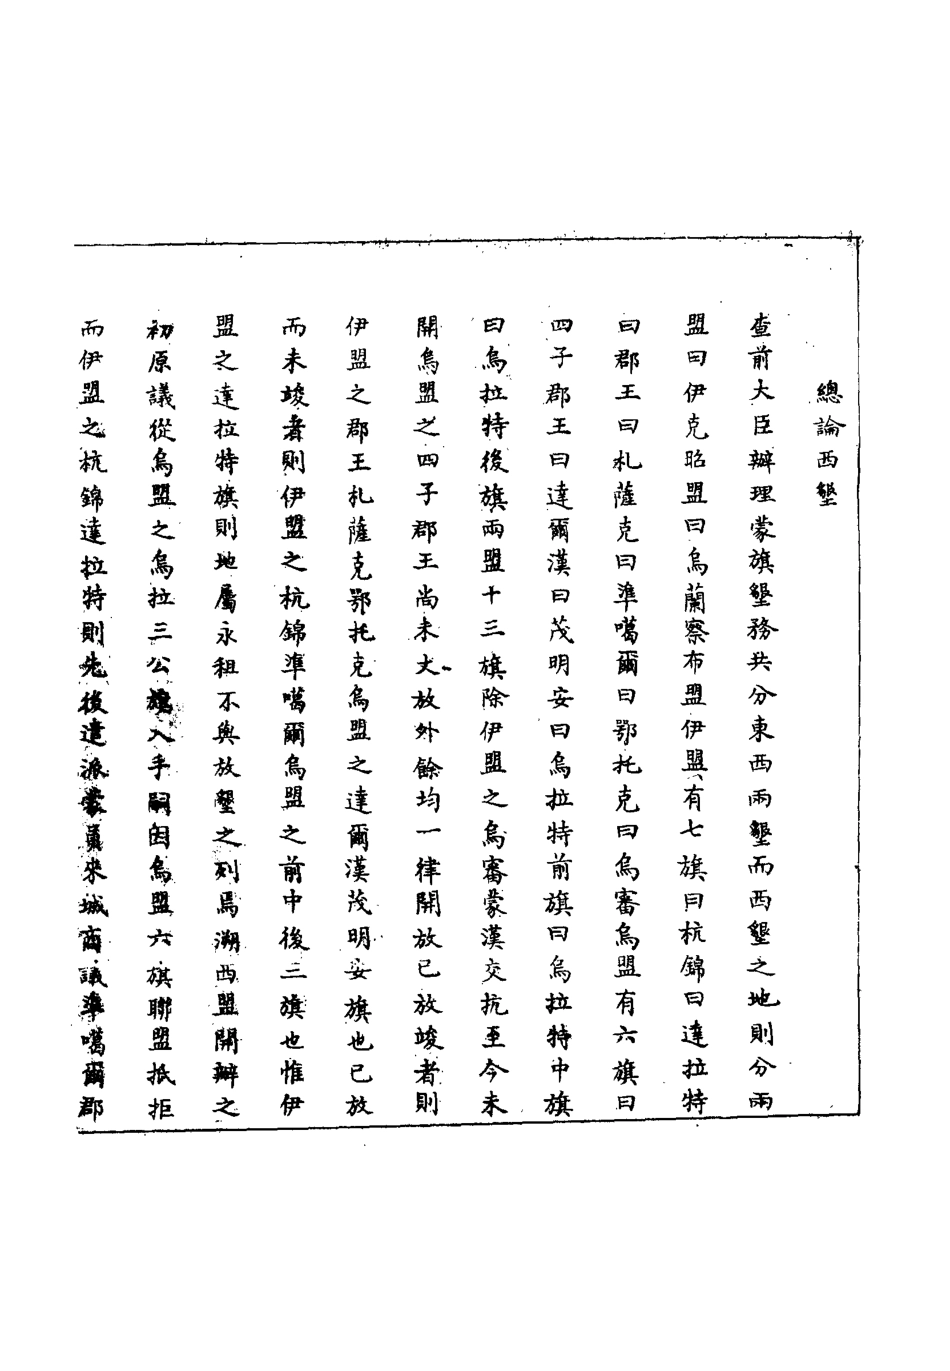 總論西墾
查前大臣辦理蒙旗墾務共分東西兩墾而西墾之地則分兩
盟曰伊克昭盟曰烏蘭察布盟伊盟有七旗曰杭錦曰達拉特
曰郡王曰札薩克曰準噶爾曰鄂托克曰烏審烏盟有六旗曰
四子郡王曰達爾漢曰茂明安曰烏拉特前旗曰烏拉特中旗
曰烏拉特後旗兩盟十三旗除伊盟之烏審蒙漢交抗至今未
開烏盟之四子郡王尚未丈放外餘均一律開放已放竣者則
伊盟之郡王札薩克鄂托克烏盟之達爾漢茂明安旗也已放
而未竣者則伊盟之杭錦準噶爾烏盟之前中後三旗也惟伊
盟之達拉特旗則地屬永租不與放墾之列焉溯西盟開辦之
初原議從烏盟之烏拉三公入手嗣因烏盟六旗聯盟抵拒
而伊盟之杭錦達拉特則先後遣派蒙員來城商議準噶爾郡